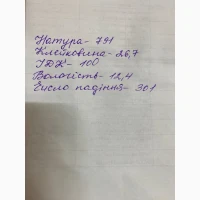 Натура- 791
Клейковина- 26,7
ІДК- 100
Вологість- 12,4
Число падіння- 301